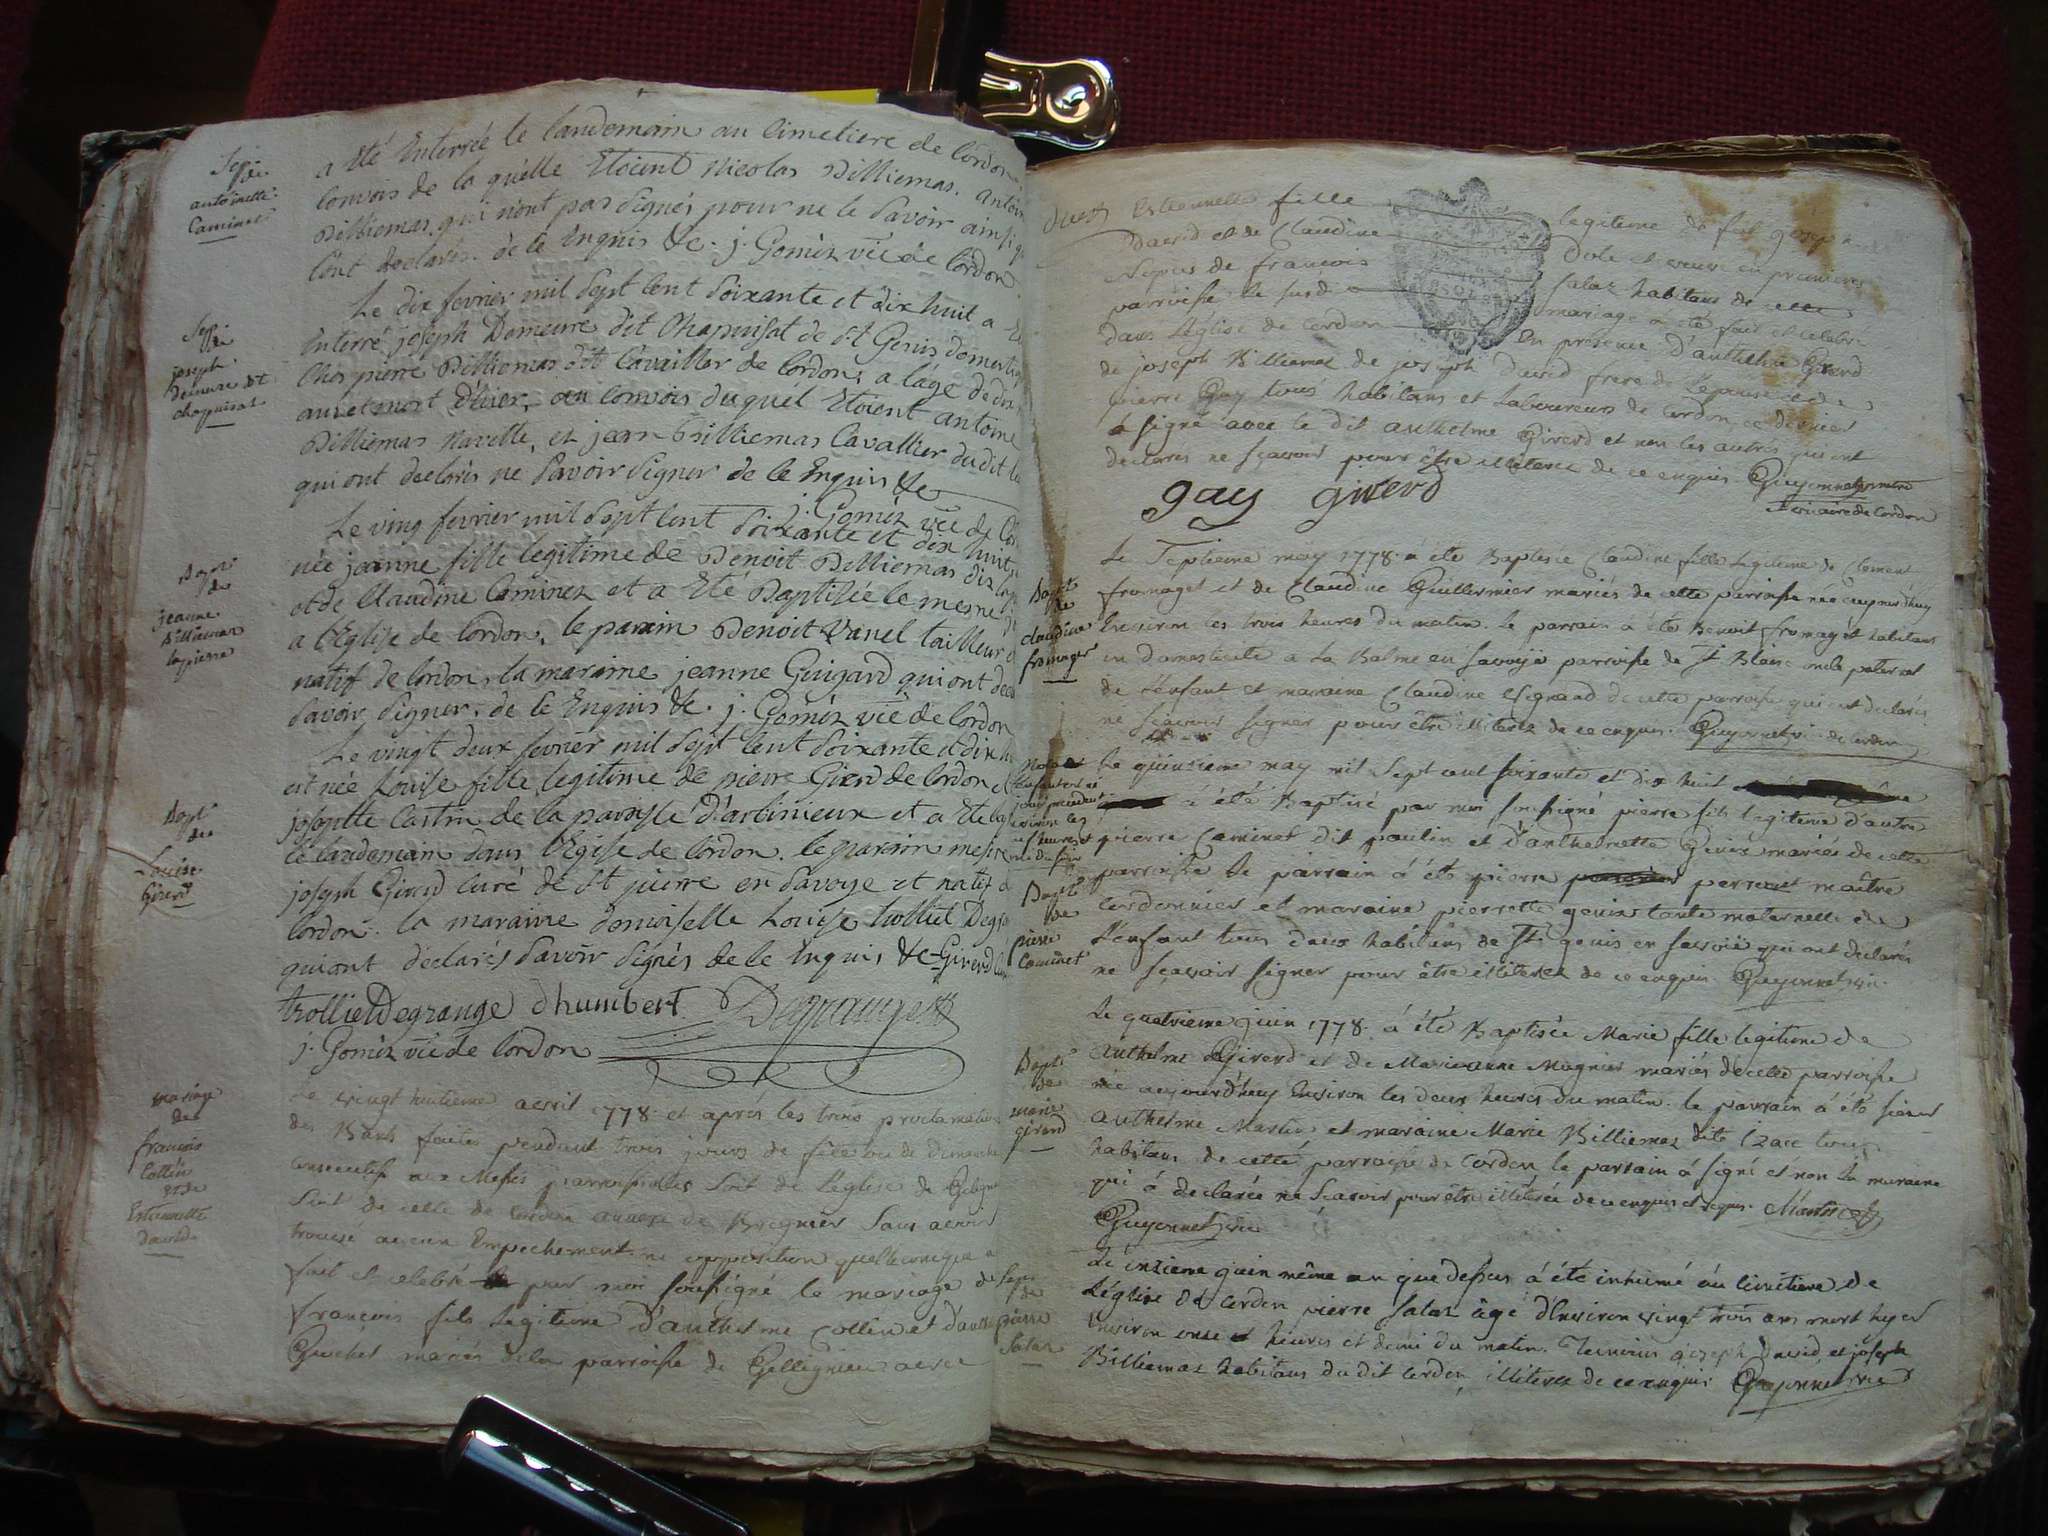 a été Enterrée le landemain au Cimetiere de Cordon,
Convois de la quelle Etoient Nicolas Billiemas. antoine
Billiemas, qui n'ont pas signés pour ne le Savoir ainsi
l'ont declarés. de le Enquis &c. j. Gomêz vic de Cordon
Sep de antoinette Caminet
Le dix fevrier mil Sept Cent Soixante et dix huit a
Enterré joseph Demeure dit Chapuisat de St Genis
Chés pierre Billiemas dit Cavailler de Cordon, a l'age de dix
au convois duquél Etoient antoine
Billiemas Navette, et jean Billiemas Cavallier du dit
qui ont declarés ne Savoir Signer de le Enquis &c
j. Gomêz vic de
Sep de
joseph
Demeure dt
chapuisat
Le ving fevrier mil Sept Cent Soixante et dix huit
née jeanne fille legitime de Benoit Billiemas
et de Claudine Caminez et a Eté Baptisée le mesme
a l'Eglise de Cordon, le parain Benoit Vanel tailleur
natif de Cordon, la maraine jeanne Guigard qui ont
Savoir Signer. de le Enquis &c. j. Gomêz vic de Cordon
Bapt
de
jeanne
Billiemas
lapierre
Le vingt deux fevrier mil Sept Cent Soixante et dix
est née Louise fille legitime de pierre Girerd de Cordon
josephte Castin de la paroisse d'arbinieux et a Eté
le landemain dans l'Eglise de Cordon. le parain
joseph Girerd Curé de St pierre en Savoye et natif
Cordon. la maraine demoiselle Louise trolliet
qui ont déclarés Savoir Signés de le Enquis &c Girerd
trolliet Degrange dhumbert. Degrange
j. Gomêz vic de Cordon
Bapt
de
Louise
Girerd
Le vingt huitieme avril 1778. et aprés les trois proclamations
des Bans faites pendant trois jours de fête ou de dimanche
consecutifs aux Messes parroissialles Soit de l'eglise de
Soit de celle de Cordon annexe de Bregnier Sans avoir
trouvé aucun Empechement ni opposition quelconque a
fait et celebré par moi Soussigné le mariage de
françois fils Legitime d'anthelme Collin et
Guichet mariés de la parroisse de avec
mariage
de
françois
Collin
et de
Estiennette
David
Estiennette fille legitime de feu joseph
David et de Claudine
françois Salaz habitans de cette
parroisse le susd mariage a été fait et celebré
dans l'église de Cordon En presence d'anthelme Girerd
de joseph Billiemaz de joseph David frere de l'epouse et de
pierre Gay tous habitans et Laboureurs de Cordon ce dernier
a signé avec le dit anthelme Girerd et non les autres qui ont
declarés ne sçavoir pour être illiterez de ce enquis. Guyonnet
gay girerd
vicaire de Cordon
Le Septieme may 1778. a été Baptisée Claudine fille Legitime de Clement
fromaget et de Claudine Guillermier mariés de cette parroisse née aujourd'huy
Environ les trois heures du matin. le parrain a été Benoit fromaget habitant
en domesticité a La Balme en Savoye parroisse de St Blaise oncle paternel
de l'enfant et maraine Claudine de cette parroisse qui ont declarés
ne Scavoir Signer pour être illiterez de ce enquis. Guyonnet vic. de Cordon
Bapt
de
claudine
fromaget
Le quinzieme may mil Sept cent soixante et dix huit
à été Baptisé par moi soussigné pierre fils legitime d'autre
pierre Caminet dit paulin et d'anthelmette Genin mariés de cette
parroisse le parrain à été pierre perrouet maître
Cordonnier et maraine pierrette genin tante maternelle de
l'enfant tous deux habitans de St genis en Savoie qui ont declarés
ne Sçavoir Signer pour être illiterez de ce enquis Guyonnet vic.
Bapt
de
pierre
Caminet
Le quatrieme juin 1778. à été Baptisée Marie fille legitime de
anthelme Girerd et de Marieanne Mugnier mariés de cette parroisse
née aujourd'huy Environ les deux heures du matin. le parrain à été sieur
anthelme Martin et maraine Marie Billiemaz dite Izace tous
habitans de cette parroisse de Cordon le parrain à signé et non la maraine
qui à declarée ne Scavoir pour être illiterée de ce enquis et requis. Martin
Guyonnet vic
Bapt
de
marie
girerd
Le onzieme juin même an que dessus à été inhumé au cimetiere de
l'église de Cordon pierre Salaz âgé d'Environ vingt trois ans mort hyer
Environ onze heures et demi du matin. Temoins joseph David et joseph
Billiemaz habitans du dit Cordon illiterez de ce enquis Guyonnet vic
Sep
de
pierre
Salaz